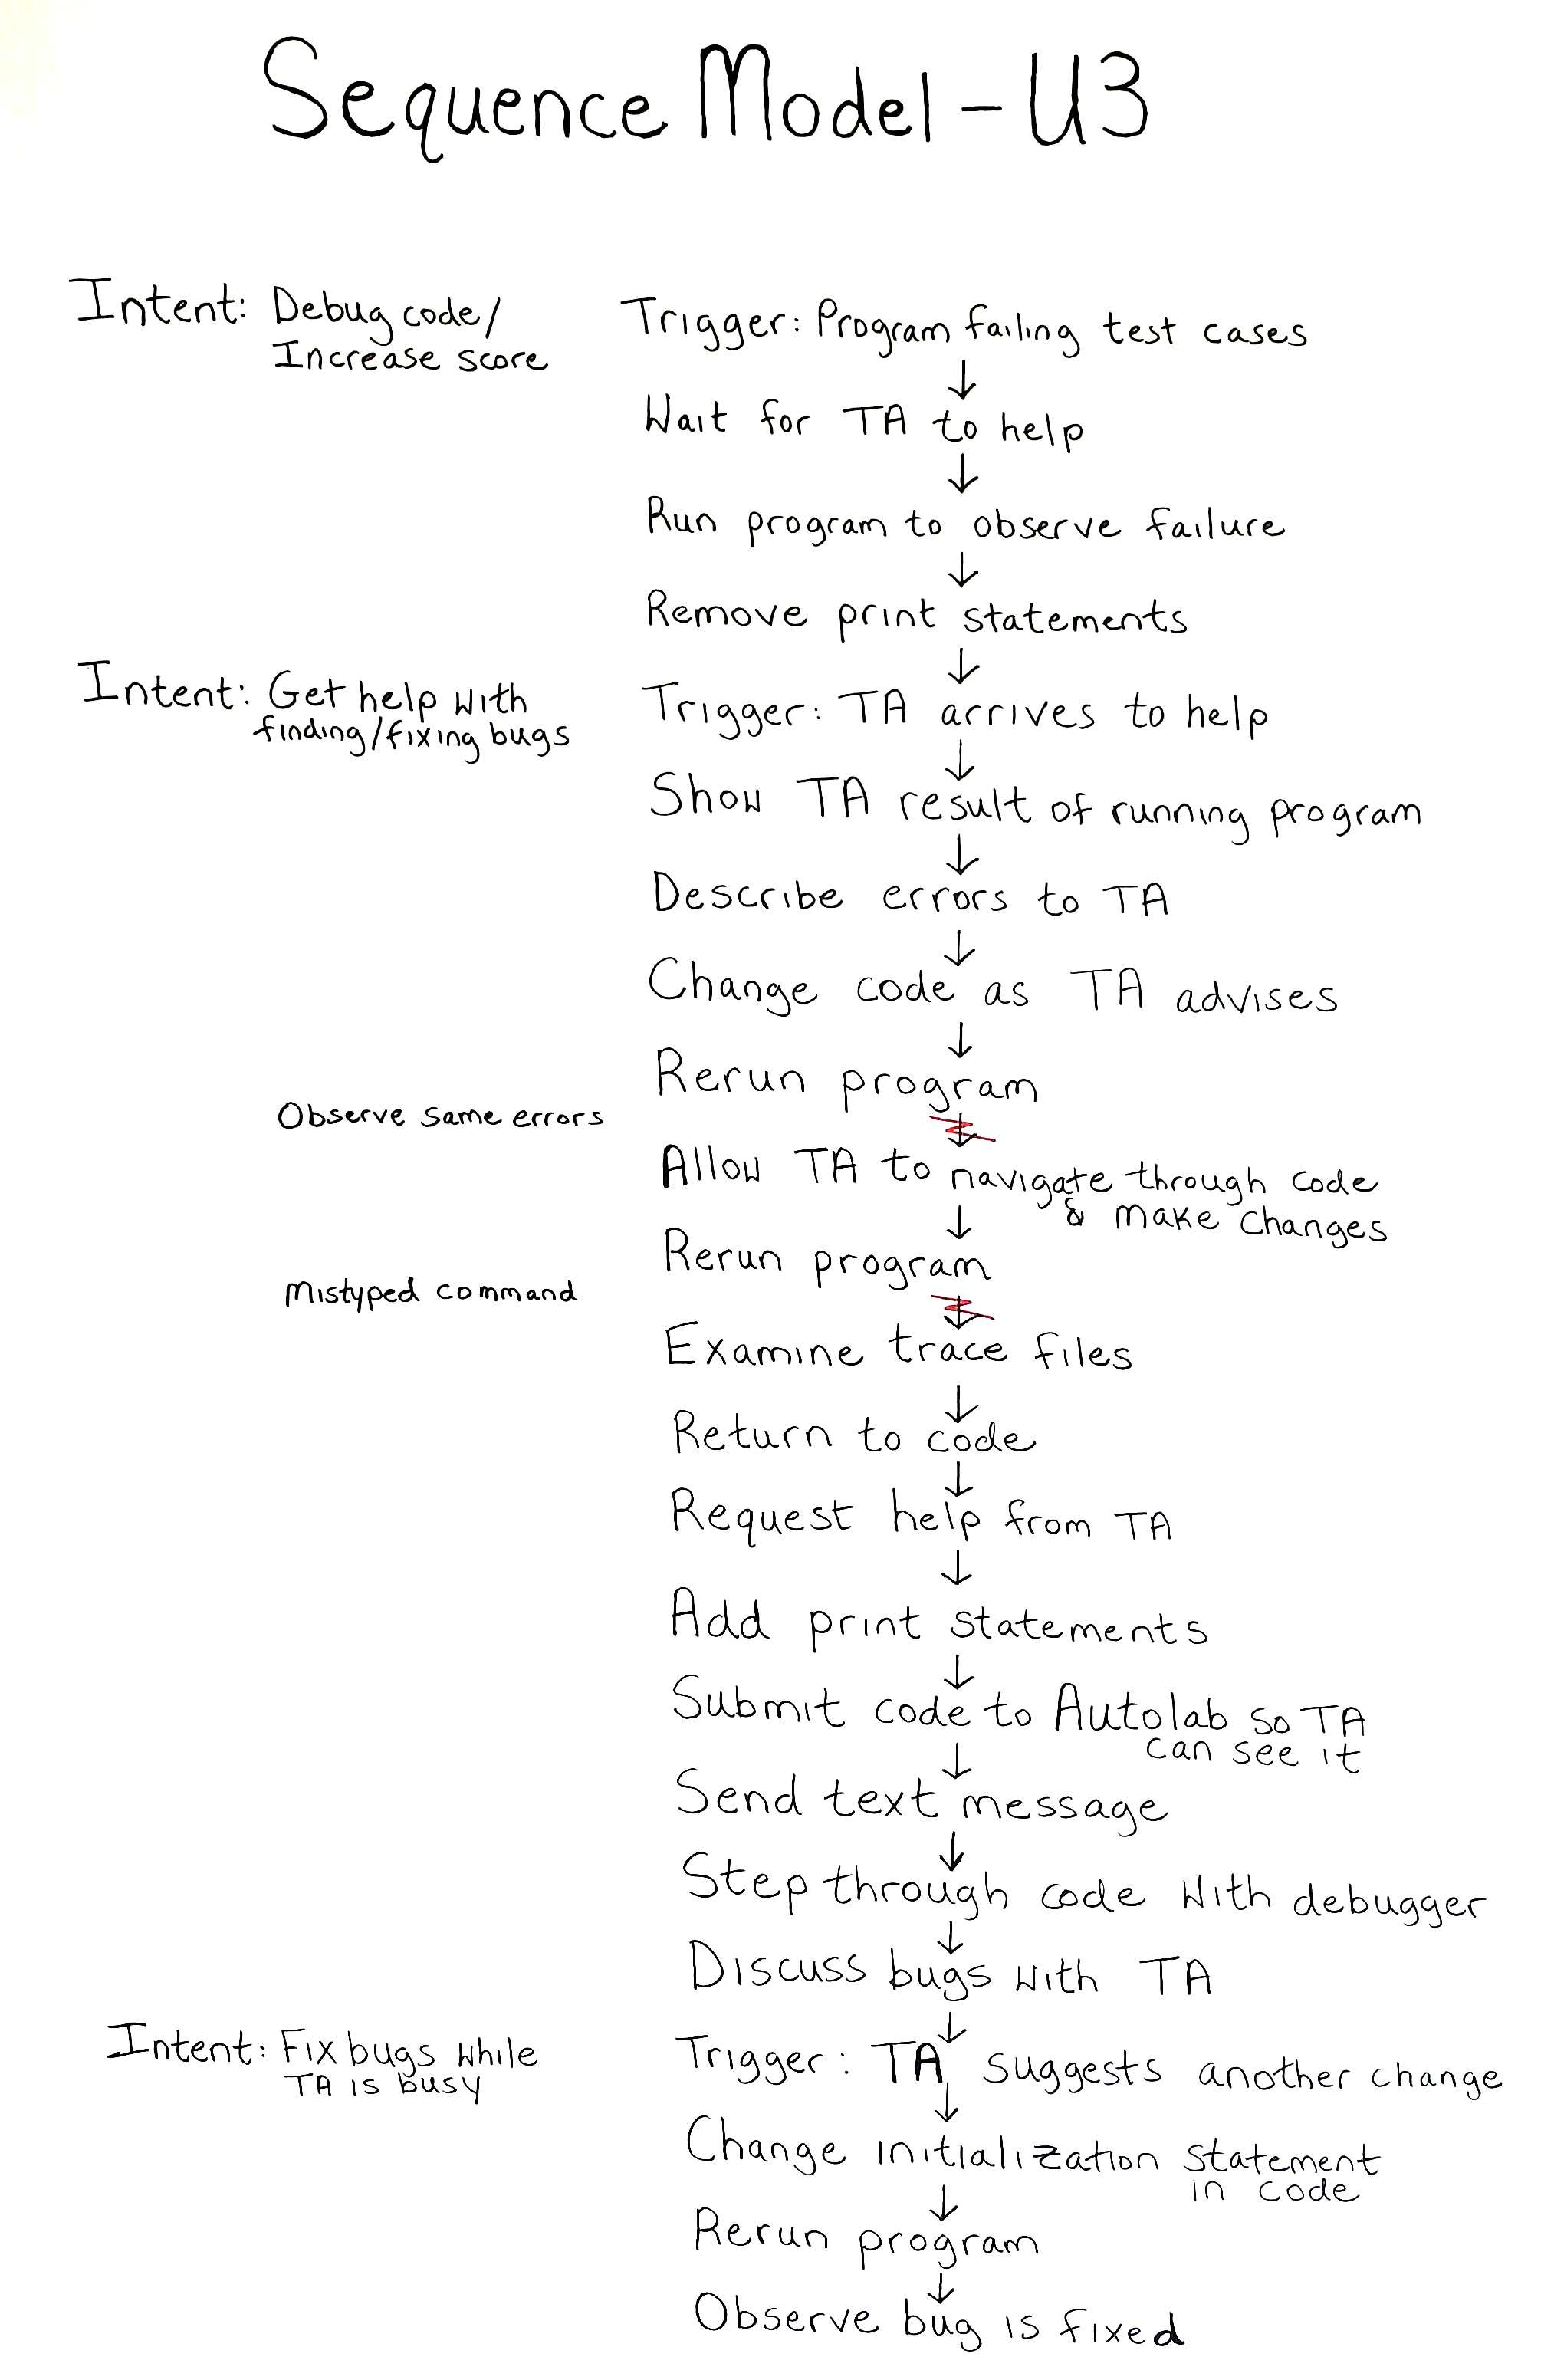 Sequence Model - U3
Intent: Debug code/
Increase score
Trigger: Program failing test cases
Wait for TA to help
Run program to observe failure
Remove print statements
Intent: Get help with
finding/fixing bugs
Trigger: TA arrives to help
Show TA result of running program
Describe errors to TA
Change code as TA advises
Rerun program
Observe same errors
Allow TA to navigate through code
& make changes
Rerun program
Mistyped command
Examine trace files
Return to code
Request help from TA
Add print statements
Submit code to Autolab so TA
can see it
Send text message
Step through code with debugger
Discuss bugs with TA
Intent: Fix bugs while
TA is busy
Trigger: TA suggests another change
Change initialization statement
in code
Rerun program
Observe bug is fixed